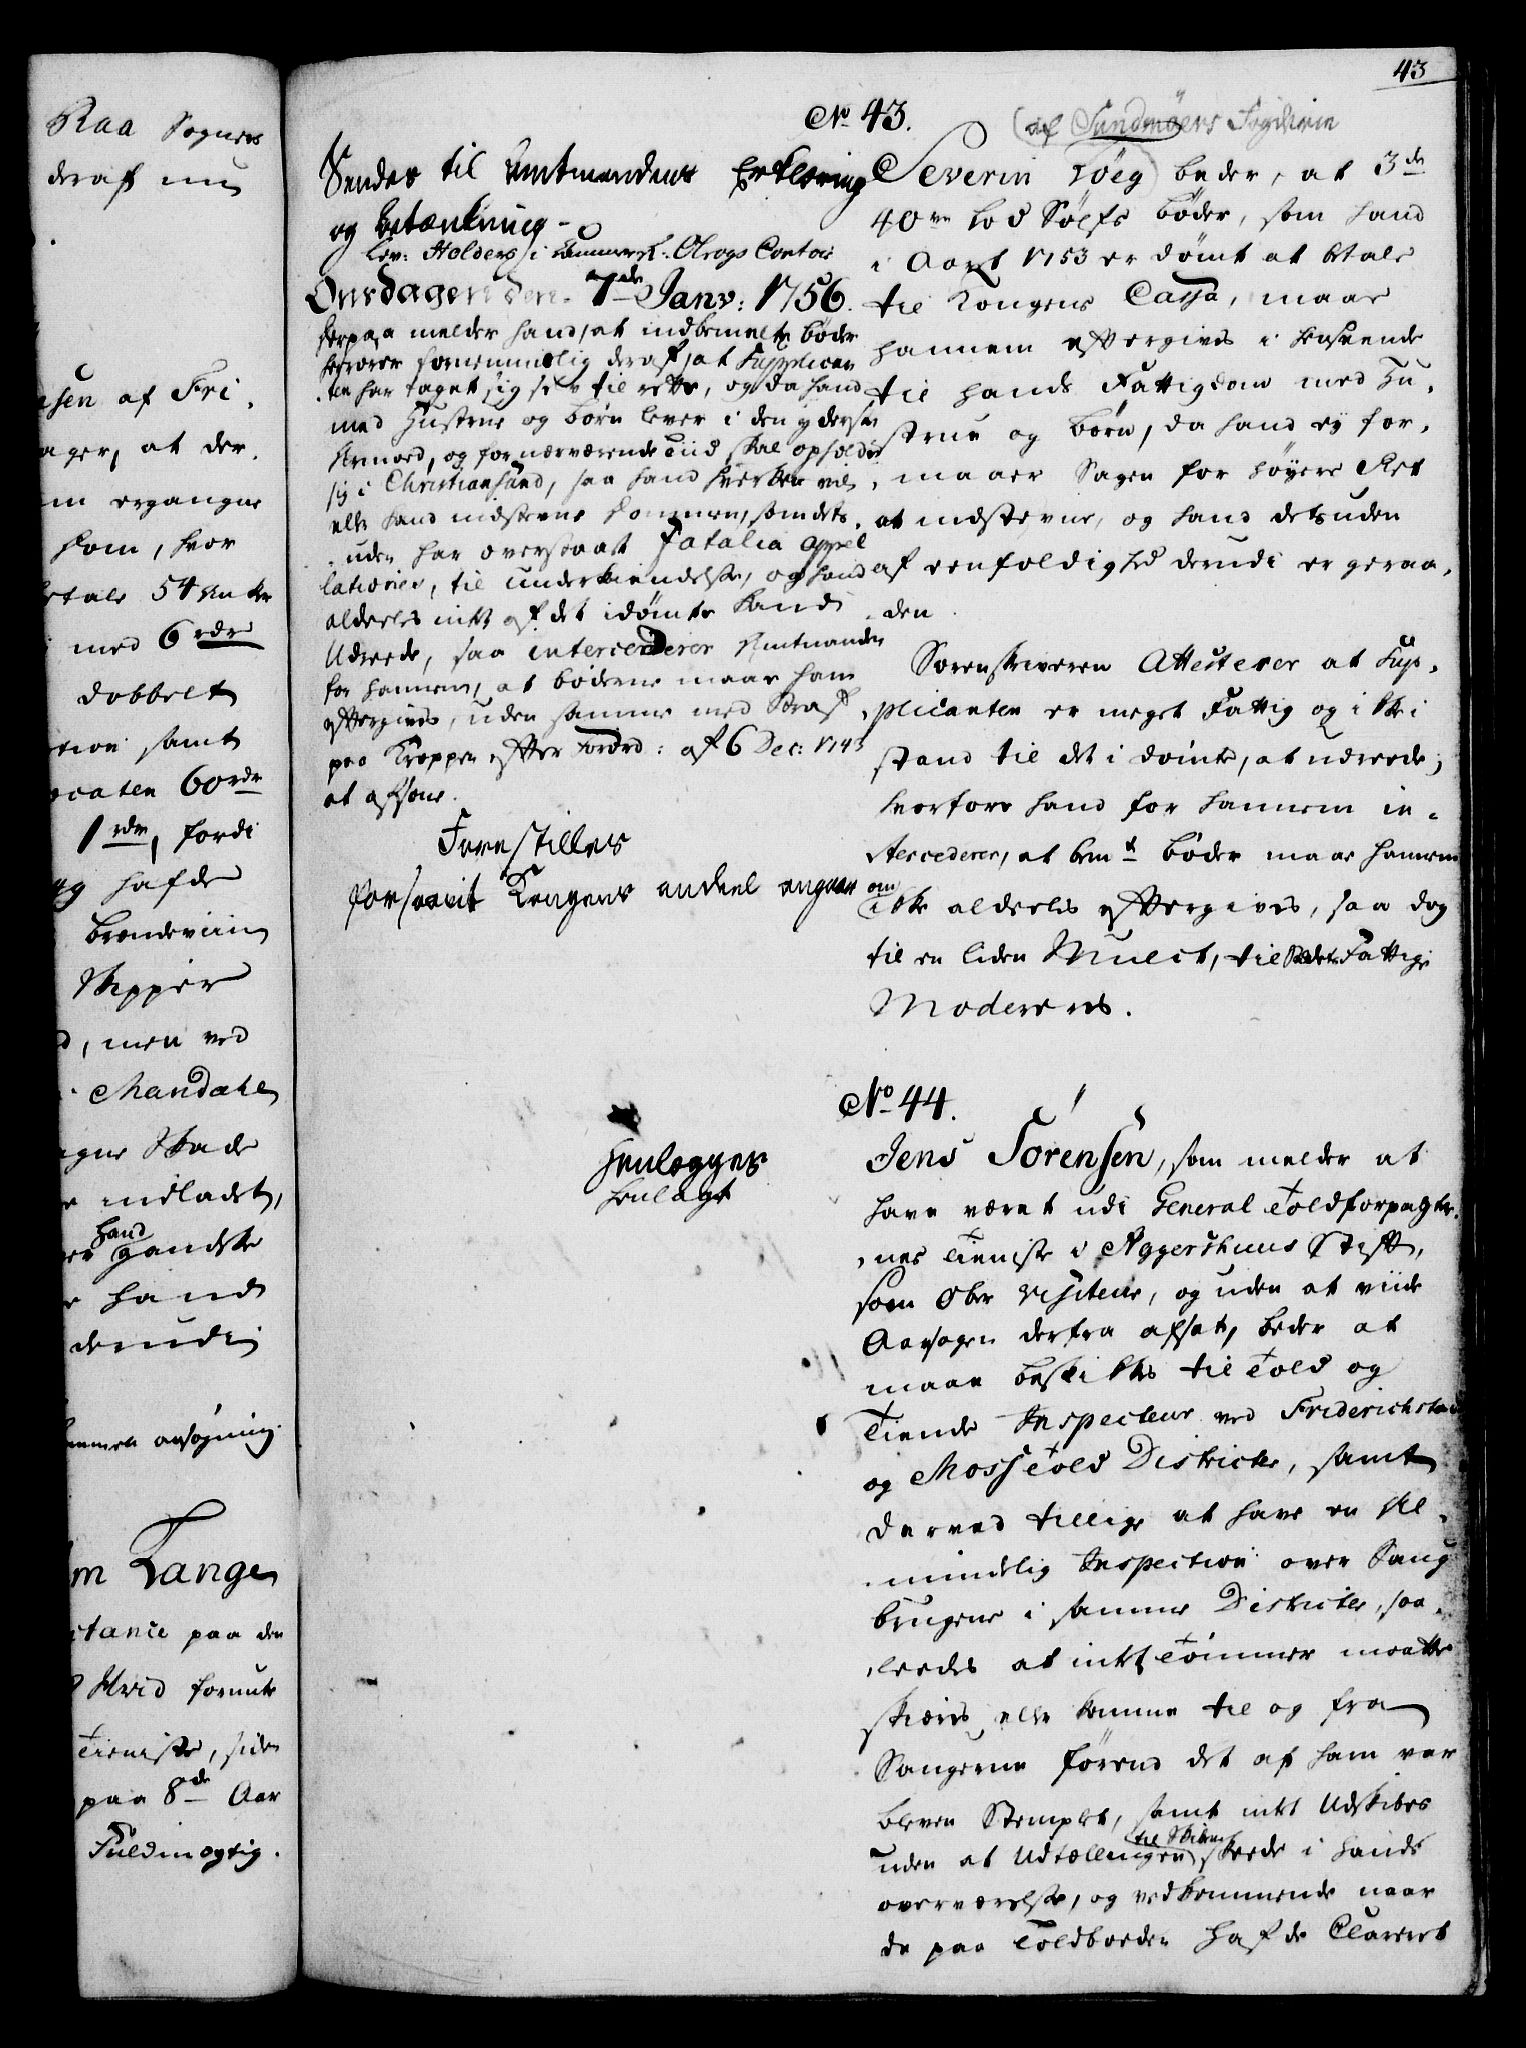 43
Raa Sogners
deraf nu
sen af Fri-
ager, at der-
m ergangne
Dom, hvor
betale 54 Anker
med 6 rdr
dobbelt
ction samt
ocaten 60 rdr
1 rdr, fordi
hafde
Brendeviin
Skipper
d, men ved
Mandahl
egne Skade
indladet,
hand
er gandske
hand
derudi
ansøgning
m Lange
ctance paa den
Hvid forunte
Tieniste, siden
paa 8de Aar
Fuldmægtig.
No 43.
(af Sundmøers Fogderie
Sendes til Amtmandens Erklæring
og betænkning -
Lev: Holders i Kammerr: Clrogs Contoir
Onsdagen den 7de Janv: 1756.
herpaa melder hand, at indbemelte bøder
herrører fornemmelig deraf, at Supplican
ten har taget sig selv til rette, og da hand
med Hustrue og Børn lever i den yderste
Armoed, og for nærværende Tiid skal opholde
sig i Christiansund, saa hand hverken vil
eller kand indstevne Dommen, som dets-
uden har overstaaet Fatalia appel
lationis, til underkiendelse, og hand
alderles intet af det idømte kand
Udreede, saa intercederer Amtmanden
for hannem, at bøderne maae ham
eftergives, uden samme med Straf
paa Kroppen efter Forord: af 6 Dec: 1743
at afsone.
Forestilles
forsaavit Kongens andeel angaaer
Severin Høeg beder, at 3de
40ve Lod Sølfs bøder, som hand
i Aaret 1753 er dømt at betale
til Kongens Cassa, maae
hannem eftergives i henseende
til hands Fattigdom med Hu-
strue og Børn, da hand ey for-
maaer Sagen for høyere Ret
at indstevne, og hand desuden
af eenfoldighed derudi er geraa-
den.
Sorenskriveren Attesterer at Sup-
plicanten er meget Fattig og ikke i
stand til det idømte, at udreede;
hvorfore hand for hannem in-
tercederer, at bemte bøder maae hannem
om
ikke alderles eftergives, saa dog
til en liden Mulct, til Stedets Fattige
Modereres.
No 44.
Henlegges
henlagt
Jens Sørensen, som melder at
have været udi General Toldforpagter-
nes Tieniste i Aggershuus Stift,
som Ober Visiteur, og uden at viide
Aarsagen derfra afsat, beder at
maae beskikkes til Told og
Tiende Inspecteur ved Friderichstad
og Moss Told Districter, samt
derved tillige at have en Al-
mindelig Inspection over Saug
brugene i samme Districter, saa-
leedes at intet Tømmer maatte
skiæres eller komme til og fra
Saugerne førend det af ham var
bleven Stemplet, samt intet Udskibes
til Skibene
uden at Udtællingen skeede i hands
overværelse, og vedkommende naar
de paa Toldboeden hafde Clareret